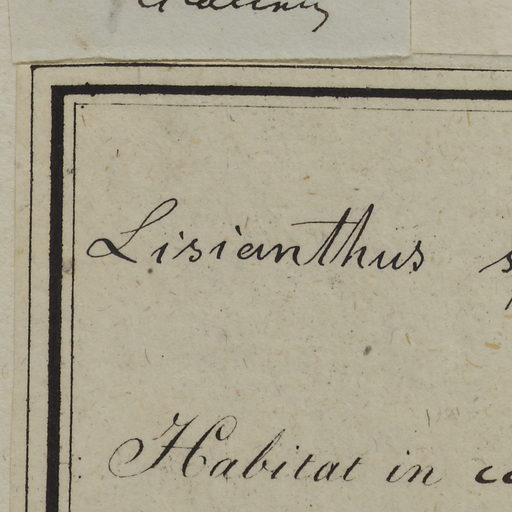 Lisianthus
Habitat in